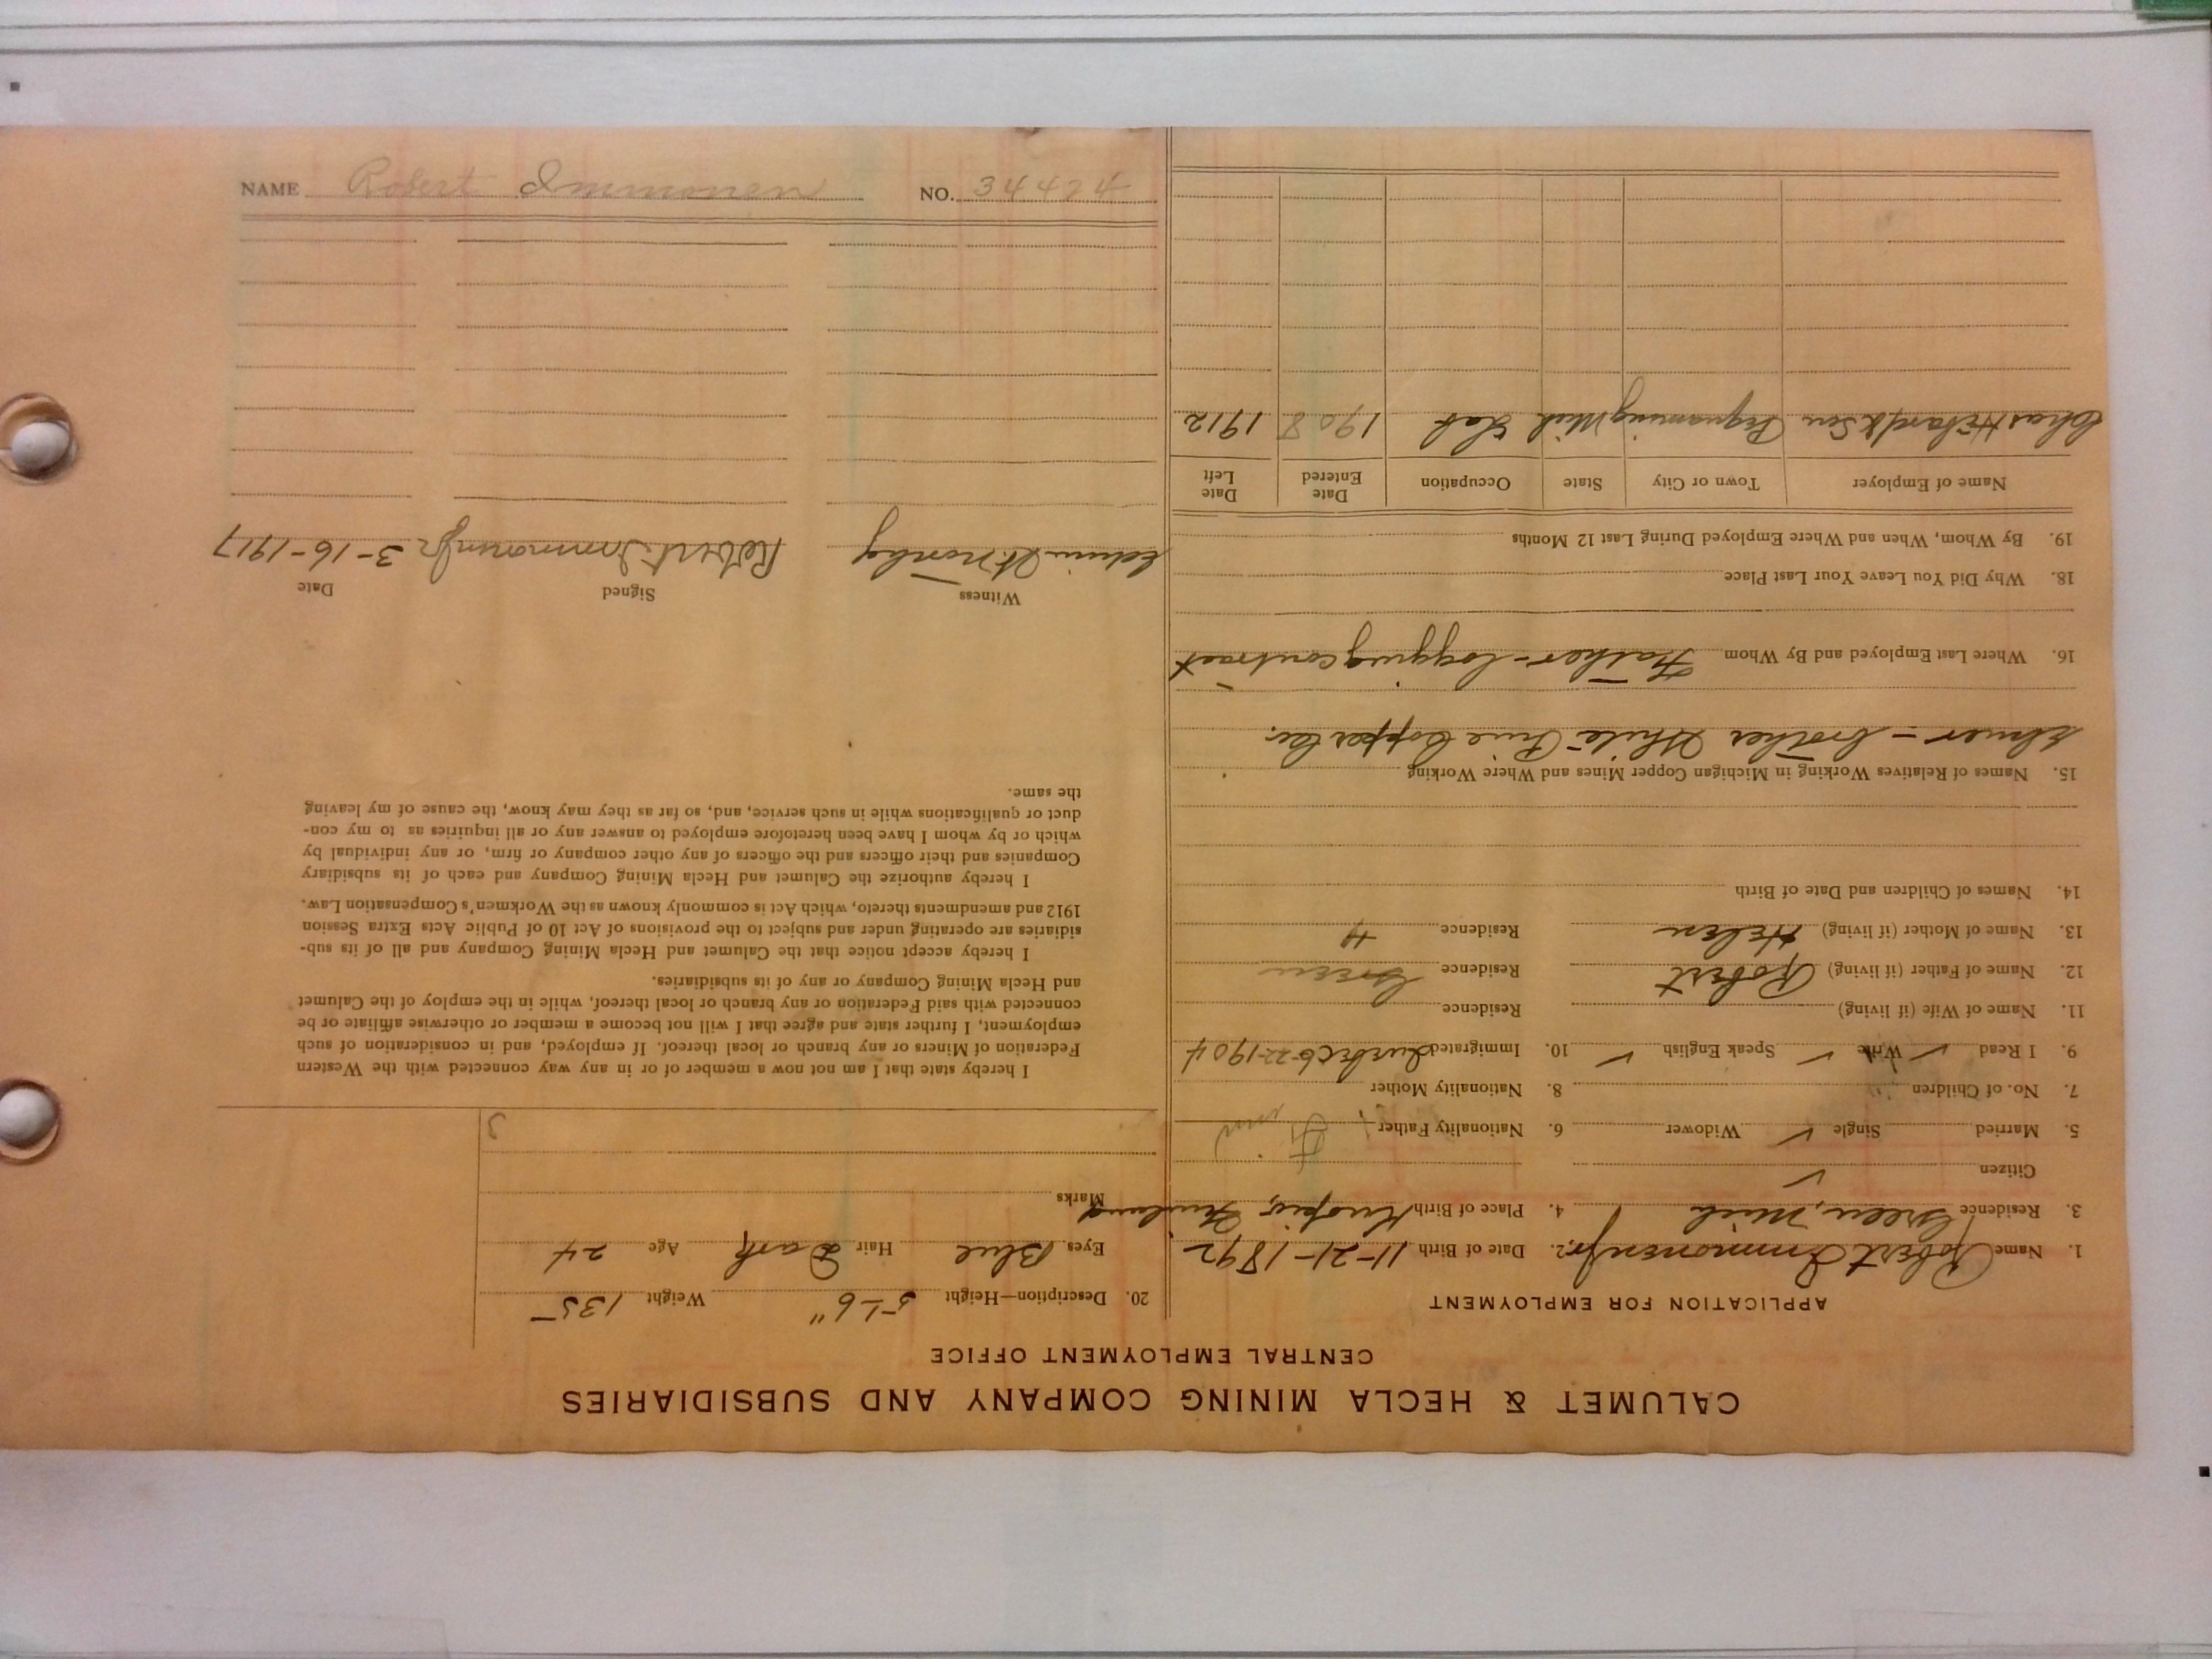 CALUMET & HECLA MINING COMPANY AND SUBSIDIARIES
CENTRAL EMPLOYMENT OFFICE
APPLICATION FOR EMPLOYMENT
1. Name Robert Immonen Jr. 2. Date of Birth 11-21-1892
3. Residence Green, Mich 4. Place of Birth Kuopio, Finland
Citizen ✓
5. Married Single ✓ Widower 6. Nationality Father Finn
7. No. of Children 8. Nationality Mother
9. I Read ✓ Write ✓ Speak English ✓ 10. Immigrated 6-22-1904
11. Name of Wife (if living) Residence
12. Name of Father (if living) Robert Residence Green
13. Name of Mother (if living) Helen Residence "
14. Names of Children and Date of Birth
15. Names of Relatives Working in Michigan Copper Mines and Where Working
Elmer - brother White Pine Copper Co.
16. Where Last Employed and By Whom Father - logging contract
18. Why Did You Leave Your Last Place
19. By Whom, When and Where Employed During Last 12 Months
Name of Employer Town or City State Occupation Date Entered Date Left
Chas Hebard & Son Pequaming Mich Lab 1908 1912
20. Description—Height 5'-6" Weight 135
Eyes Blue Hair Dark Age 24
Marks
I hereby state that I am not now a member of or in any way connected with the Western
Federation of Miners or any branch or local thereof. If employed, and in consideration of such
employment, I further state and agree that I will not become a member or otherwise affiliate or be
connected with said Federation or any branch or local thereof, while in the employ of the Calumet
and Hecla Mining Company or any of its subsidiaries.
I hereby accept notice that the Calumet and Hecla Mining Company and all of its sub-
sidiaries are operating under and subject to the provisions of Act 10 of Public Acts Extra Session
1912 and amendments thereto, which Act is commonly known as the Workmen's Compensation Law.
I hereby authorize the Calumet and Hecla Mining Company and each of its subsidiary
Companies and their officers and the officers of any other company or firm, or any individual by
which or by whom I have been heretofore employed to answer any or all inquiries as to my con-
duct or qualifications while in such service, and, so far as they may know, the cause of my leaving
the same.
Witness Signed Date
Edwin Robert Immonen Jr 3-16-1917
NAME Robert Immonen NO. 34424